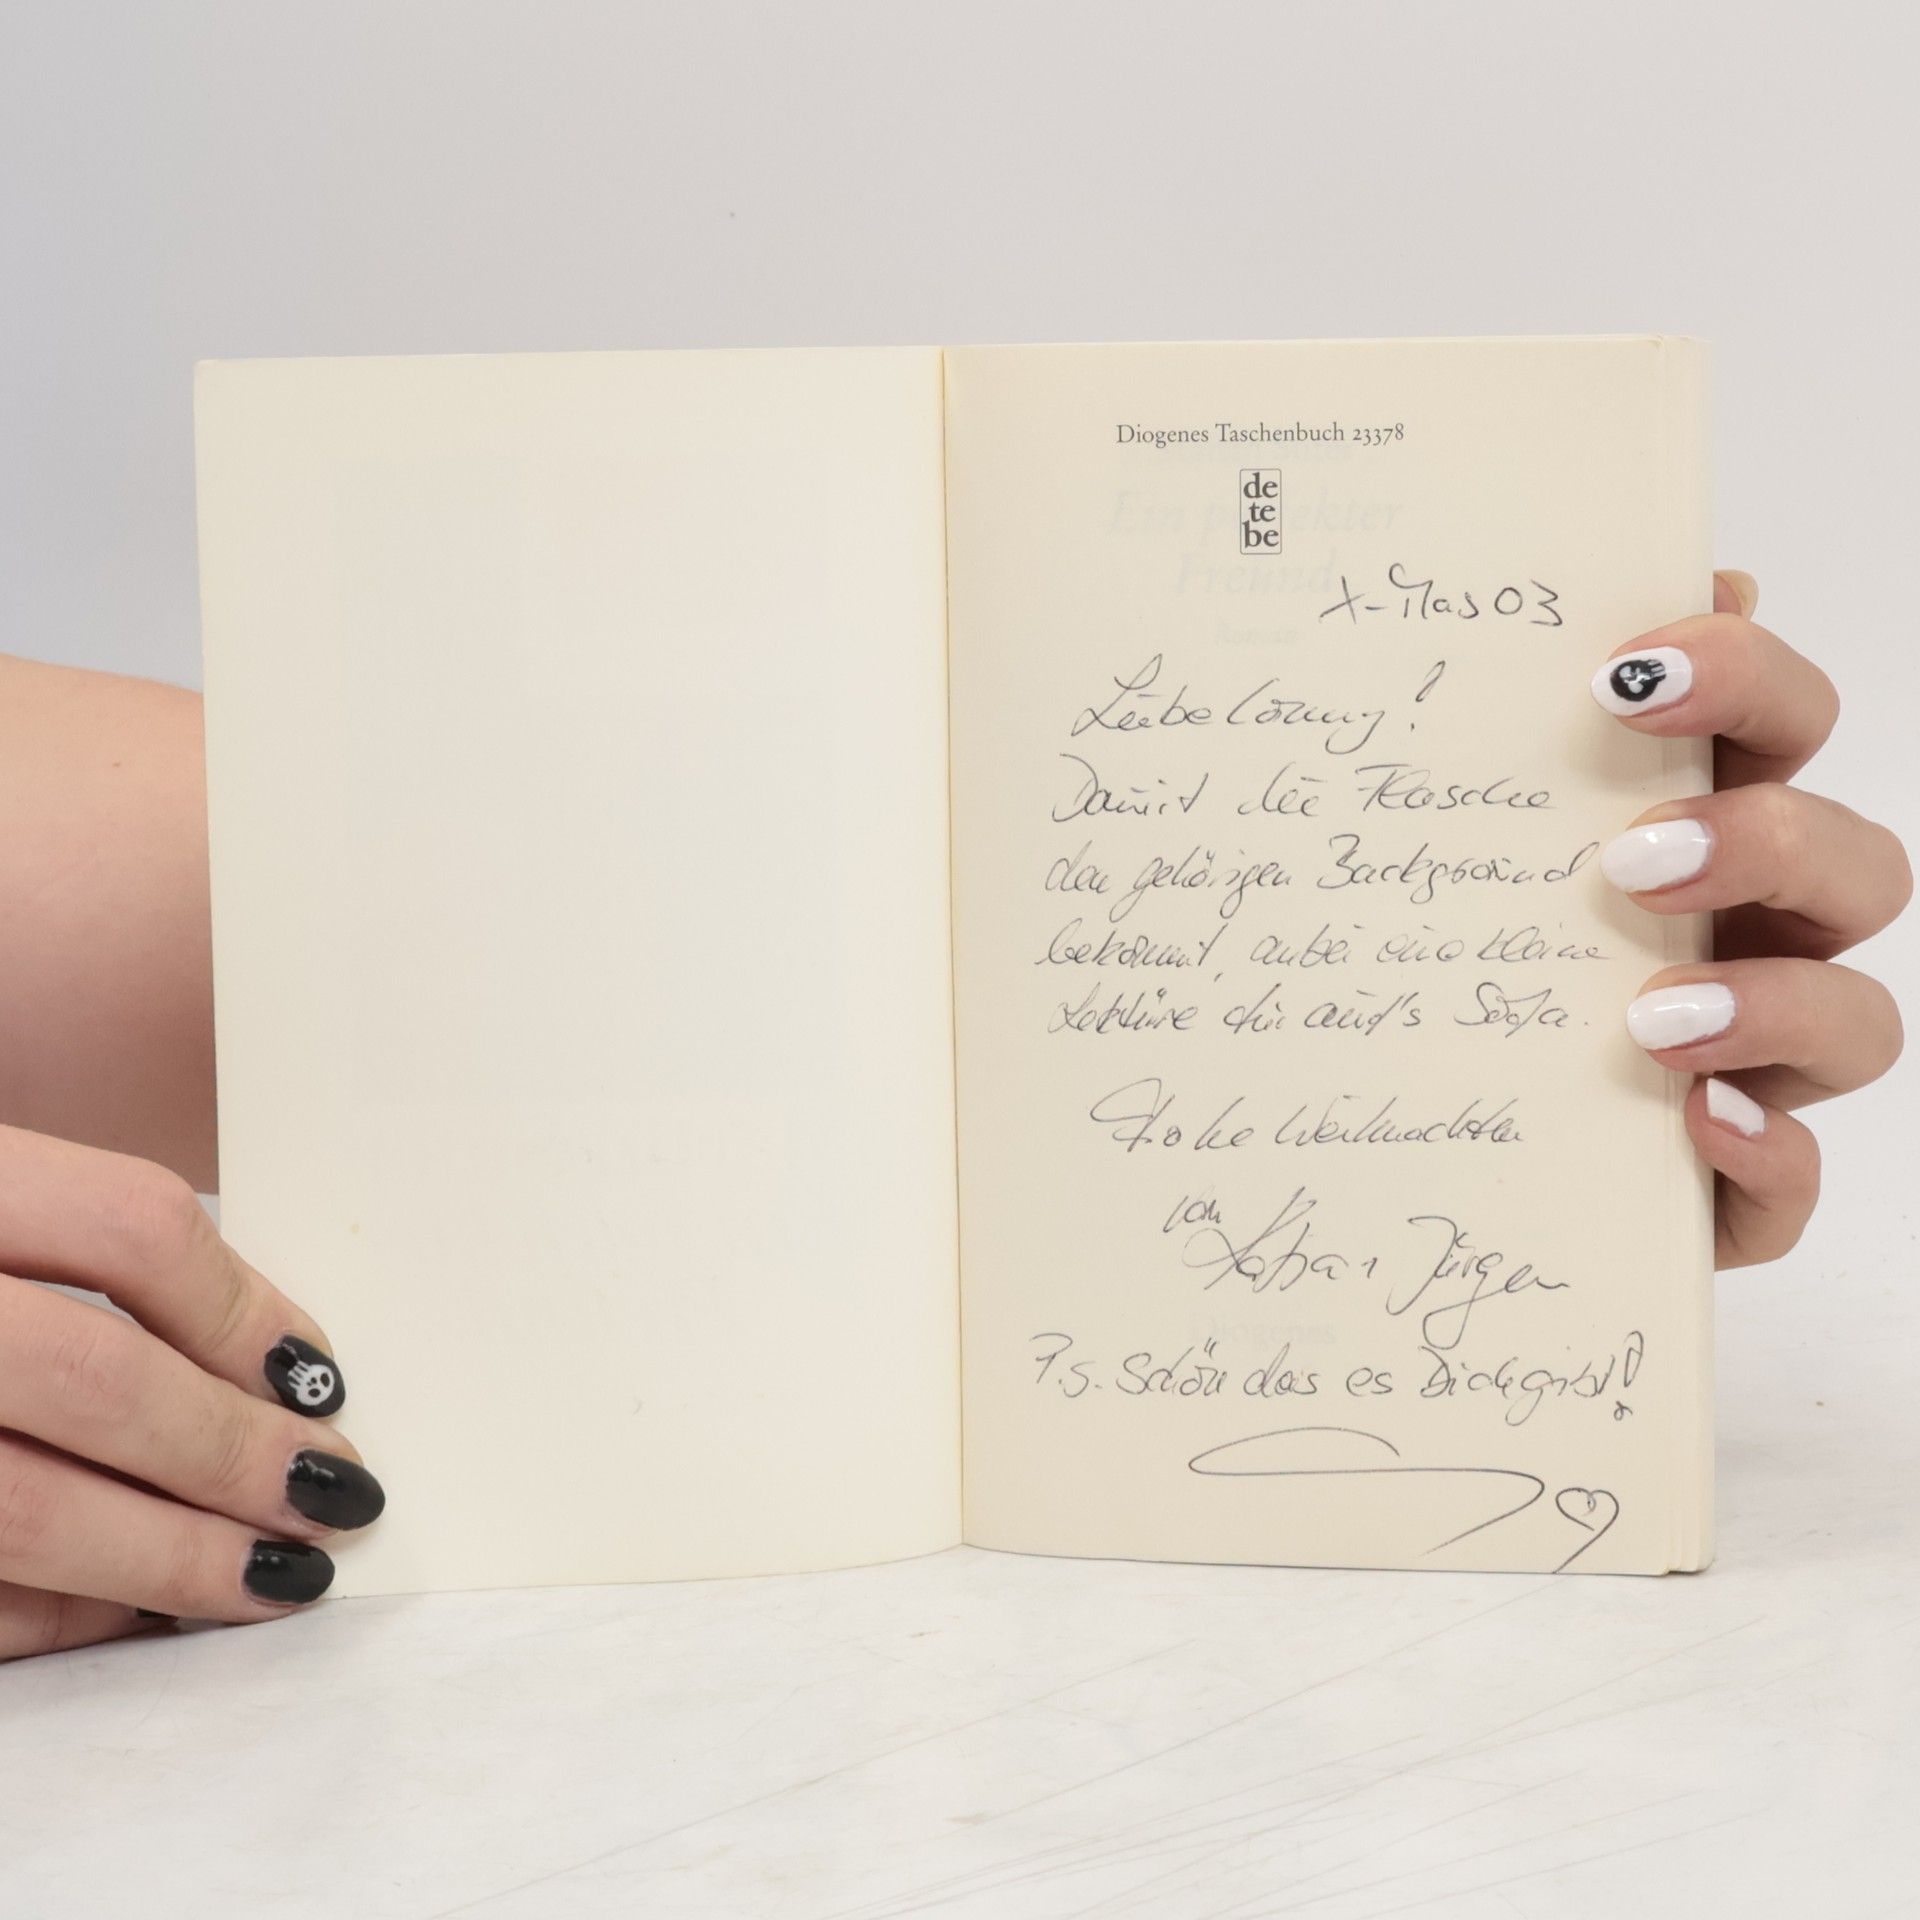 Diogenes Taschenbuch 23378
de
te
be
Ein perfekter
Freund
Roman
X-Mas 03
Liebe !
Damit die Flasche
den gehörigen Background
bekommt, anbei eine kleine
Lektüre für auf's Sofa.
Frohe Weihnachten
von
Jürgen
P.S. Schön das es Dich gibt!
Diogenes